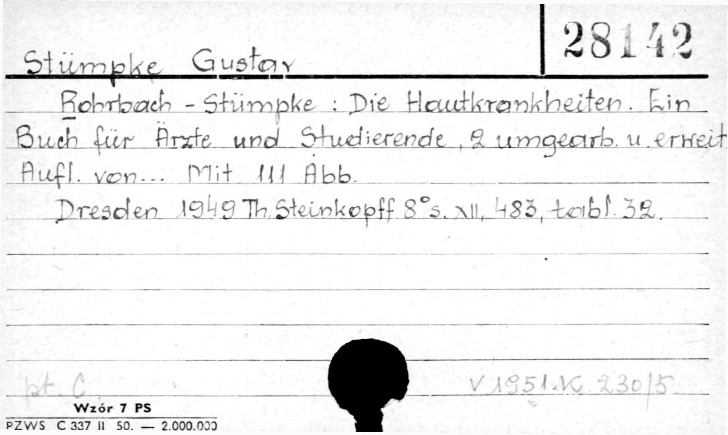 28142
Stümpke Gustav
Rohrbach - Stümpke : Die Hautkrankheiten. Ein
Buch für Ärzte und Studierende, 2 umgearb. u. erweit
Aufl. von... Mit 111 Abb.
Dresden 1949 Th. Steinkopff 8° s. XII, 483, tabl. 32.
pt. C. V 1951.K. 230/5
Wzór 7 PS
PZWS C 337 II 50. — 2.000.000